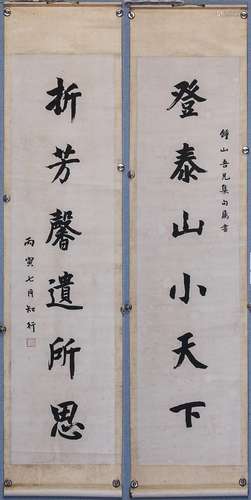 登泰山小天下
鍾山吾兄集句屬書
折芳馨遺所思
丙寅七月知行